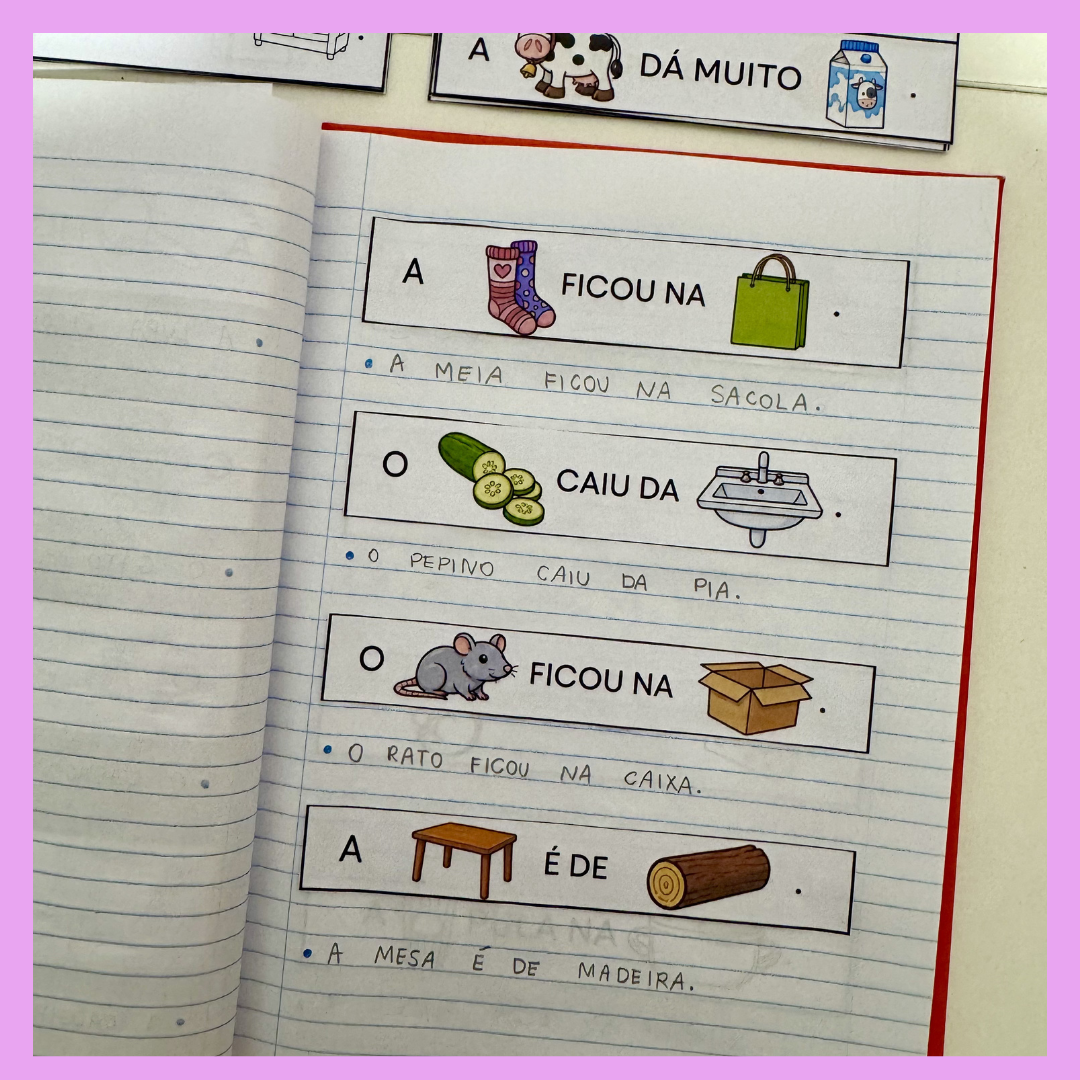 A DÁ MUITO .
A FICOU NA .
• A MEIA FICOU NA SACOLA.
O CAIU DA .
• O PEPINO CAIU DA PIA.
O FICOU NA .
• O RATO FICOU NA CAIXA.
A É DE .
PULA NA
• A MESA É DE MADEIRA.